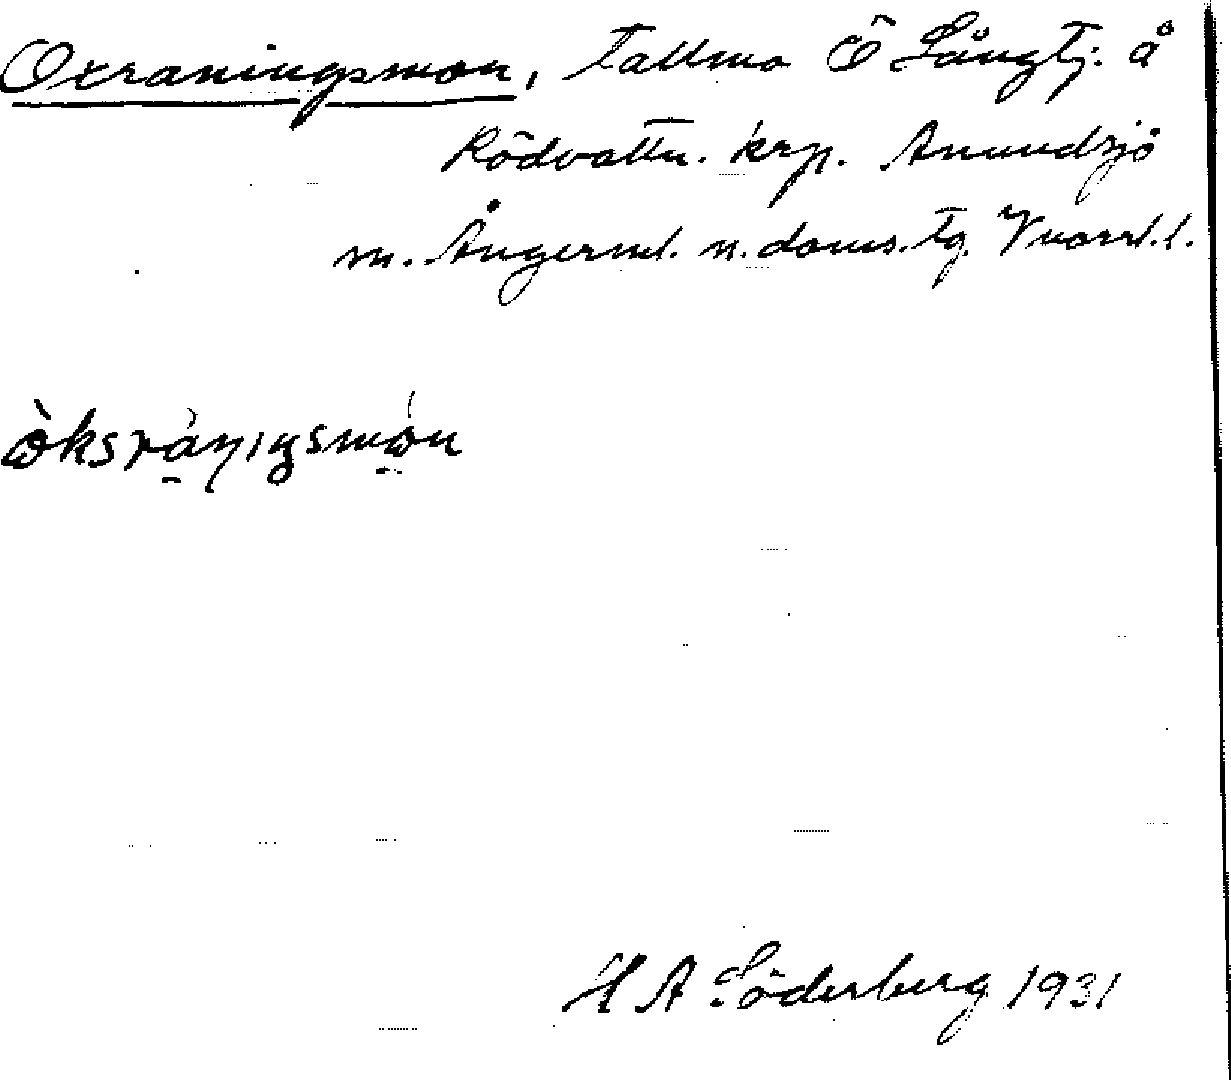 Oxraningsmon, Tallmo Ö Långtj. å
Rödvattn. krp. Anundsjö
m. Ångerml. n. doms. tg. Västrl. l.
H A Söderberg 1931